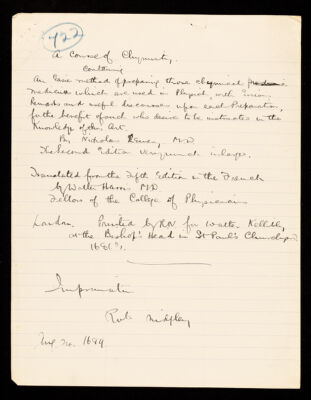 422
A Course of Chymistry,
Containing
An Easie method of preparing those chymical
medicines which are used in Physick, with Curious
Remarks and useful discourses upon each Preparation,
for the benefit of such who desire to be instructed in the
Knowledge of this Art.
By Nicholas Lemery, M.D.
The Second Edition very much inlarged.
Translated from the Fifth Edition in the French
by Walter Harris M.D.
Fellow of the College of Physicians
London. Printed by R.N. for Walter Kettilby,
at the Bishop's Head in St Paul's Churchyard
Imprimatur
Rob. Midgley